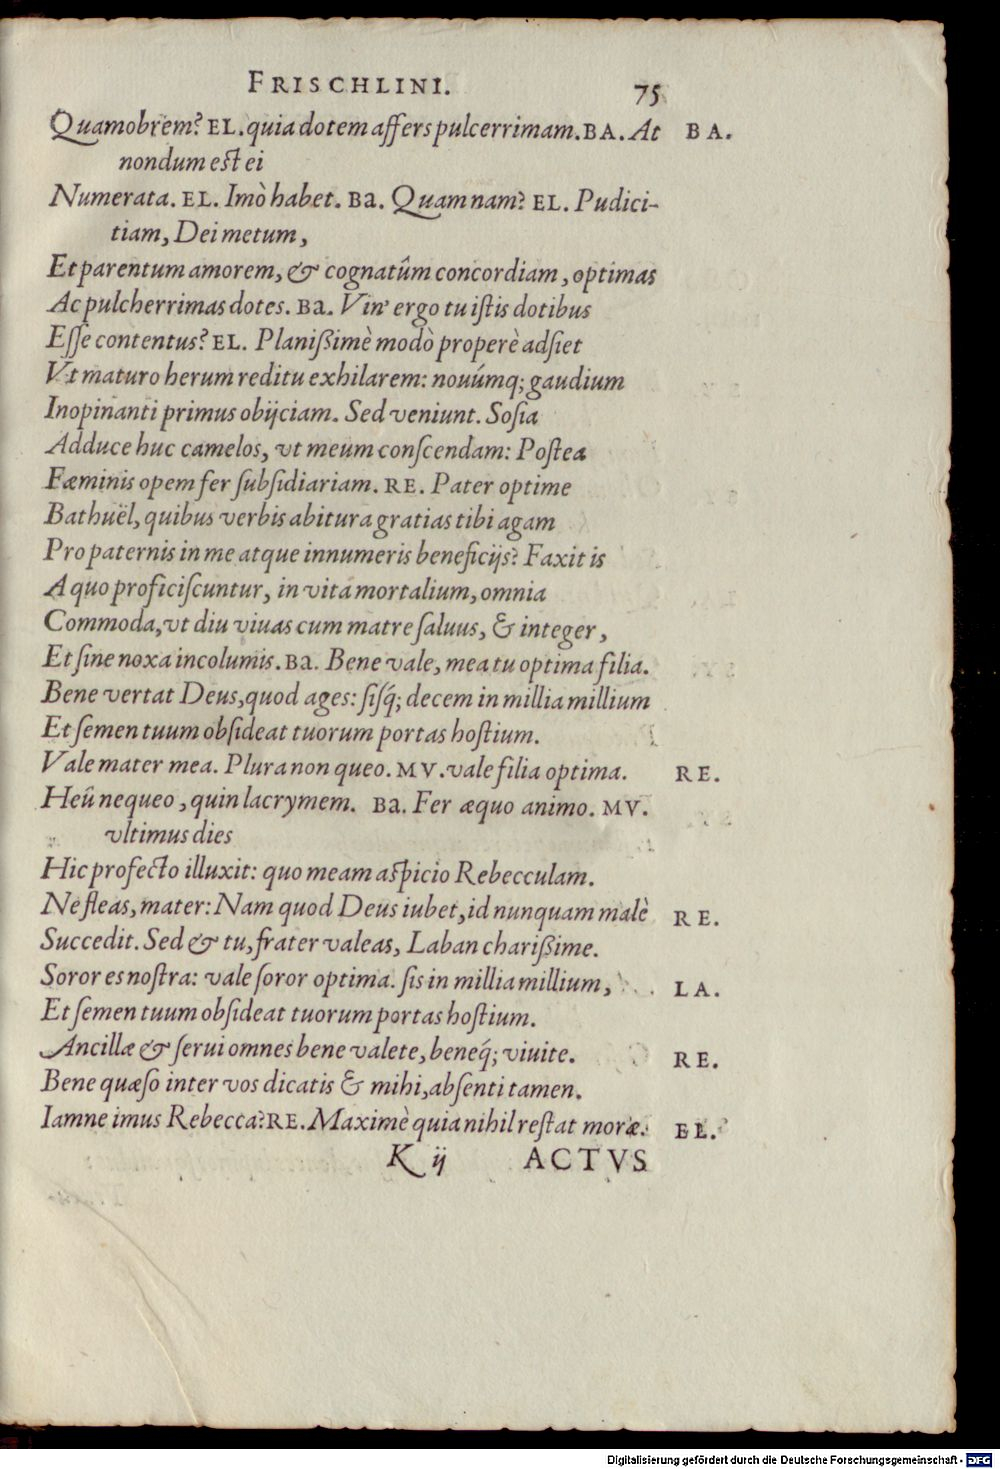 FRISCHLINI. 75
Quamobrem? EL. quia dotem affers pulcerrimam. BA. At BA.
nondum est ei
Numerata. EL. Imò habet. Ba. Quamnam? EL. Pudici-
tiam, Dei metum,
Et parentum amorem, & cognatûm concordiam, optimas
Ac pulcherrimas dotes. Ba. Vin' ergo tu istis dotibus
Esse contentus? EL. Planißimè modò properè adsiet
Vt maturo herum reditu exhilarem: nouúmq; gaudium
Inopinanti primus obijciam. Sed veniunt. Sosia
Adduce huc camelos, vt meum conscendam: Postea
Fæminis opem fer subsidiariam. RE. Pater optime
Bathuël, quibus verbis abitura gratias tibi agam
Pro paternis in me atque innumeris beneficijs? Faxit is
A quo proficiscuntur, in vita mortalium, omnia
Commoda, vt diu viuas cum matre saluus, & integer,
Et sine noxa incolumis. Ba. Bene vale, mea tu optima filia.
Bene vertat Deus, quod ages: sisq́; decem in millia millium
Et semen tuum obsideat tuorum portas hostium.
Vale mater mea. Plura non queo. MV. vale filia optima. RE.
Heû nequeo, quin lacrymem. Ba. Fer æquo animo. MV.
vltimus dies
Hic profecto illuxit: quo meam aspicio Rebecculam.
Ne fleas, mater: Nam quod Deus iubet, id nunquam malè RE.
Succedit. Sed & tu, frater valeas, Laban charißime.
Soror es nostra: vale soror optima. sis in millia millium, LA.
Et semen tuum obsideat tuorum portas hostium.
Ancillæ & serui omnes bene valete, beneq́; viuite. RE.
Bene quæso inter vos dicatis & mihi, absenti tamen.
Iamne imus Rebecca? RE. Maximè quia nihil restat moræ. EL.
K ij ACTVS
Digitalisierung gefördert durch die Deutsche Forschungsgemeinschaft - DFG